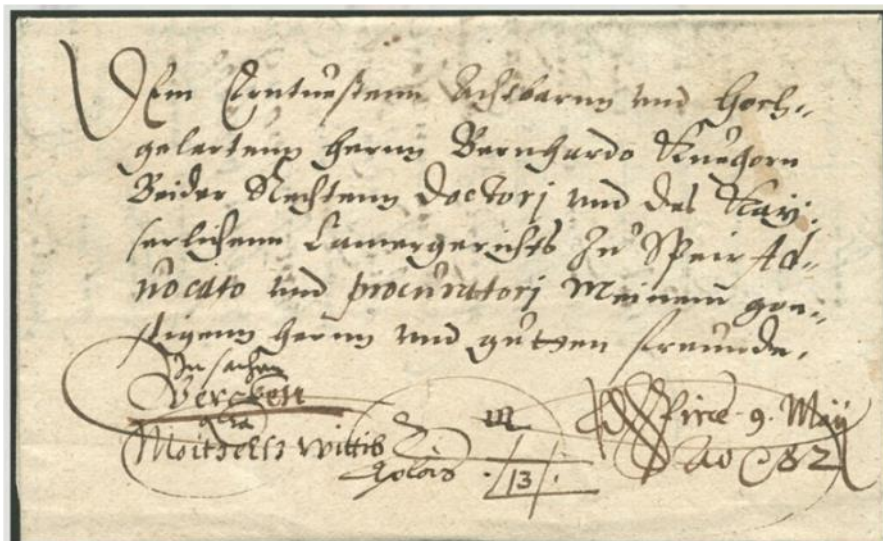 Dem Erntuesten Achtbarnn und Hoch-
gelertenn Hernn Bernhardo Kuehorn
Beider Rechtenn Doctorj und des Kay-
serlichenn Camergerichts Zu Speir Ad-
uocato und procuratorj Meinem gon-
stigenn hernn und gutten freunde.
In sachen
Bercken
ctra
Wittib
13
Spire 9. Maÿ
Ao 82